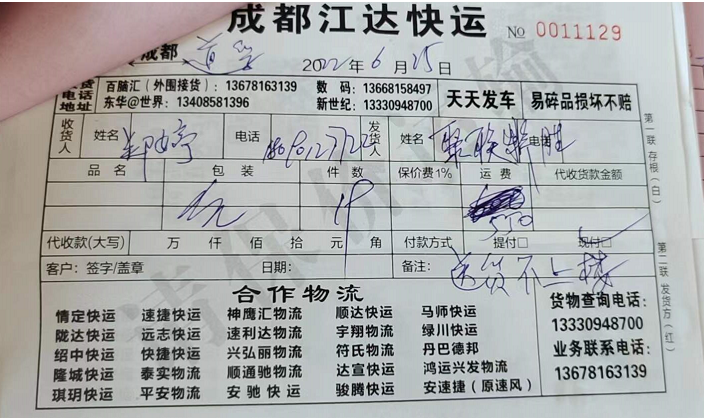 成都江达快运 No 0011129
成都 2022年6月25日
发货电话地址 百脑汇（外围接货）：13678163139 数 码：13668158497 天天发车 易碎品损坏不赔
东华@世界：13408581396 新世纪：13330948700
收货人 姓名 电话 发货人 姓名 电话
品名 包装 件数 保价费1% 运费 代收货款金额
550
代收款(大写) 万 仟 佰 拾 元 角 付款方式 提付□ 现付□
客户：签字/盖章 日期： 备注：送货不上楼
合作物流
情定快运 速捷快运 神鹰汇物流 顺达快运 马师快运
陇达快运 远志快运 速利达物流 宇翔物流 绿川快运
绍中快运 快捷快运 兴弘丽物流 符氏物流 丹巴德邦
隆城快运 泰实物流 顺通驰物流 达宣快运 鸿运兴发物流
琪玥快运 平安物流 安驰快运 骏腾快运 安速捷（原速风）
货物查询电话：
13330948700
业务联系电话：
13678163139
第一联 存根（白）
第二联 发货方（红）